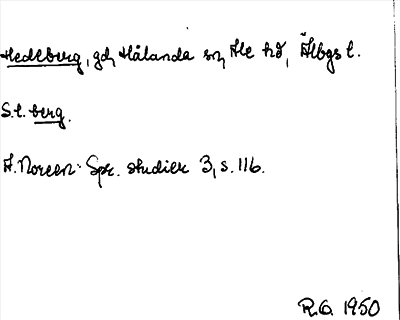 Hedeberg, gd, Hålanda sn, Ale hd, Älvbgs l.
S.l. berg.
A. Noreen: Spr. studier 3, s. 116.
R.G. 1950